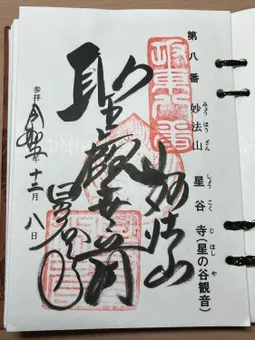 第八番 妙法山 星谷寺(星の谷観音)
みょう ほう ざん
しょう こく じ ほし や
妙法山
聖観世音
星谷寺
坂東八番
参拝 令和 年 十二月 八日